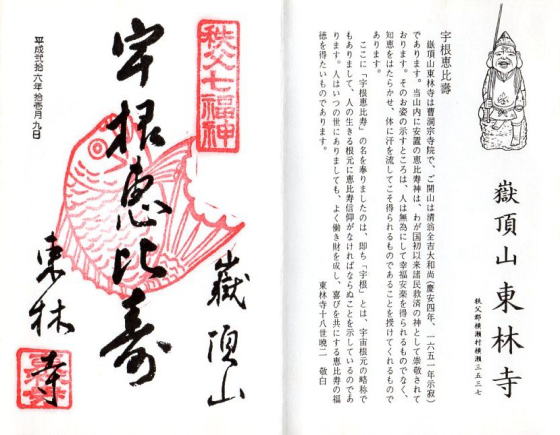 嶽頂山 東林寺
秩父郡横瀬村横瀬三五三七
宇根恵比壽
嶽頂山東林寺は曹洞宗寺院で、ご開山は清翁全吉大和尚(慶安四年、一六五一年示寂)
であります。当山内に安置の恵比寿神は、わが国初以来諸民救済の神として崇敬されて
おります。そのお姿の示すところは、人は無為にして幸福安楽を得られるものでなく、
知恵をはたらかせ、体に汗を流してこそ得られるものであることを授けてくれるもので
あります。
ここに「宇根恵比寿」の名を奉りましたのは、即ち「宇根」とは、宇宙根元の略称で
もありまして、人の生きる根元に恵比寿信仰がなければならぬことを示しているのであ
ります。人はいつの世にありましても、よく働き財を成し、喜びを共にする恵比寿の福
徳を得たいものであります。
東林寺十八世晩二 敬白
秩父七福神
嶽頂山
宇根恵比寿
東林寺
平成弐拾六年拾壱月九日